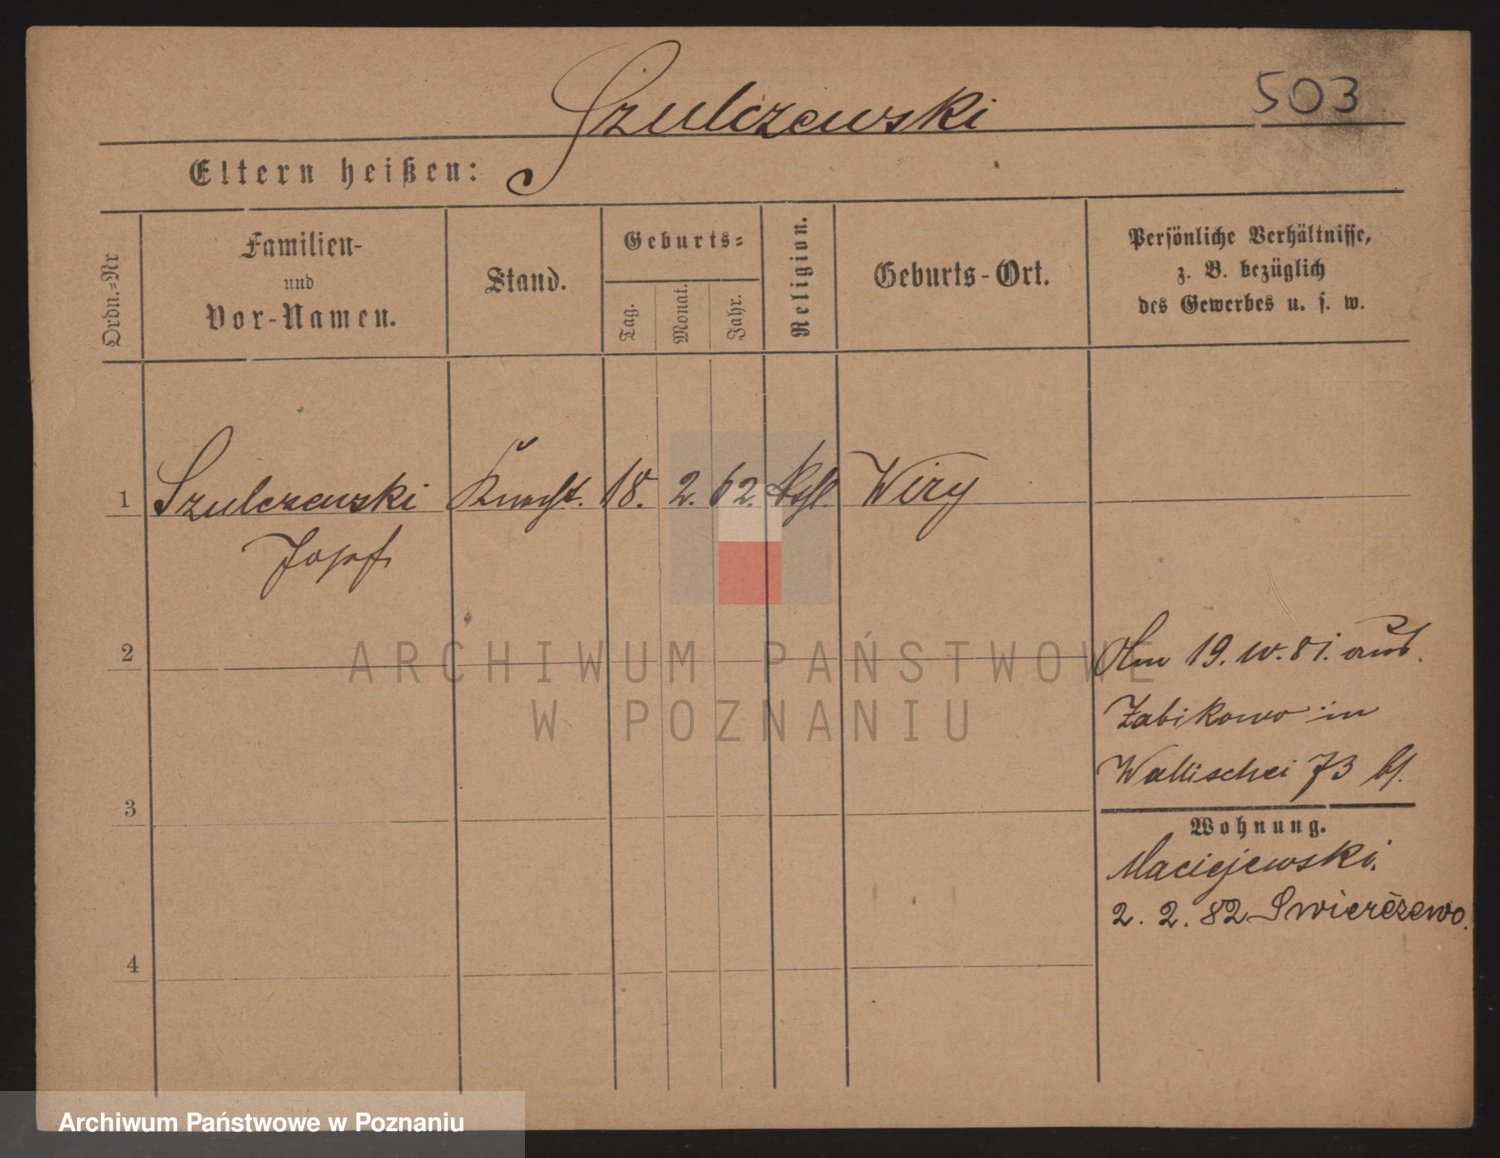 Szulczewski
503
Eltern heißen:
Ordn.=Nr
Familien-
und
Vor-Namen.
Stand.
Geburts=
Tag.
Monat.
Jahr.
Religion.
Geburts-Ort.
Persönliche Verhältnisse,
z. B. bezüglich
des Gewerbes u. s. w.
1 Szulczewski Knecht. 18. 2. 62. kath. Wiry
Josef
2
Am 19. 10. 81. aus
Zabikowo in
Wallischei 73 bei
3
Wohnung.
Maciejewski.
2. 2. 82 Swierczewo.
4
ARCHIWUM PAŃSTWOWE
W POZNANIU
Archiwum Państwowe w Poznaniu